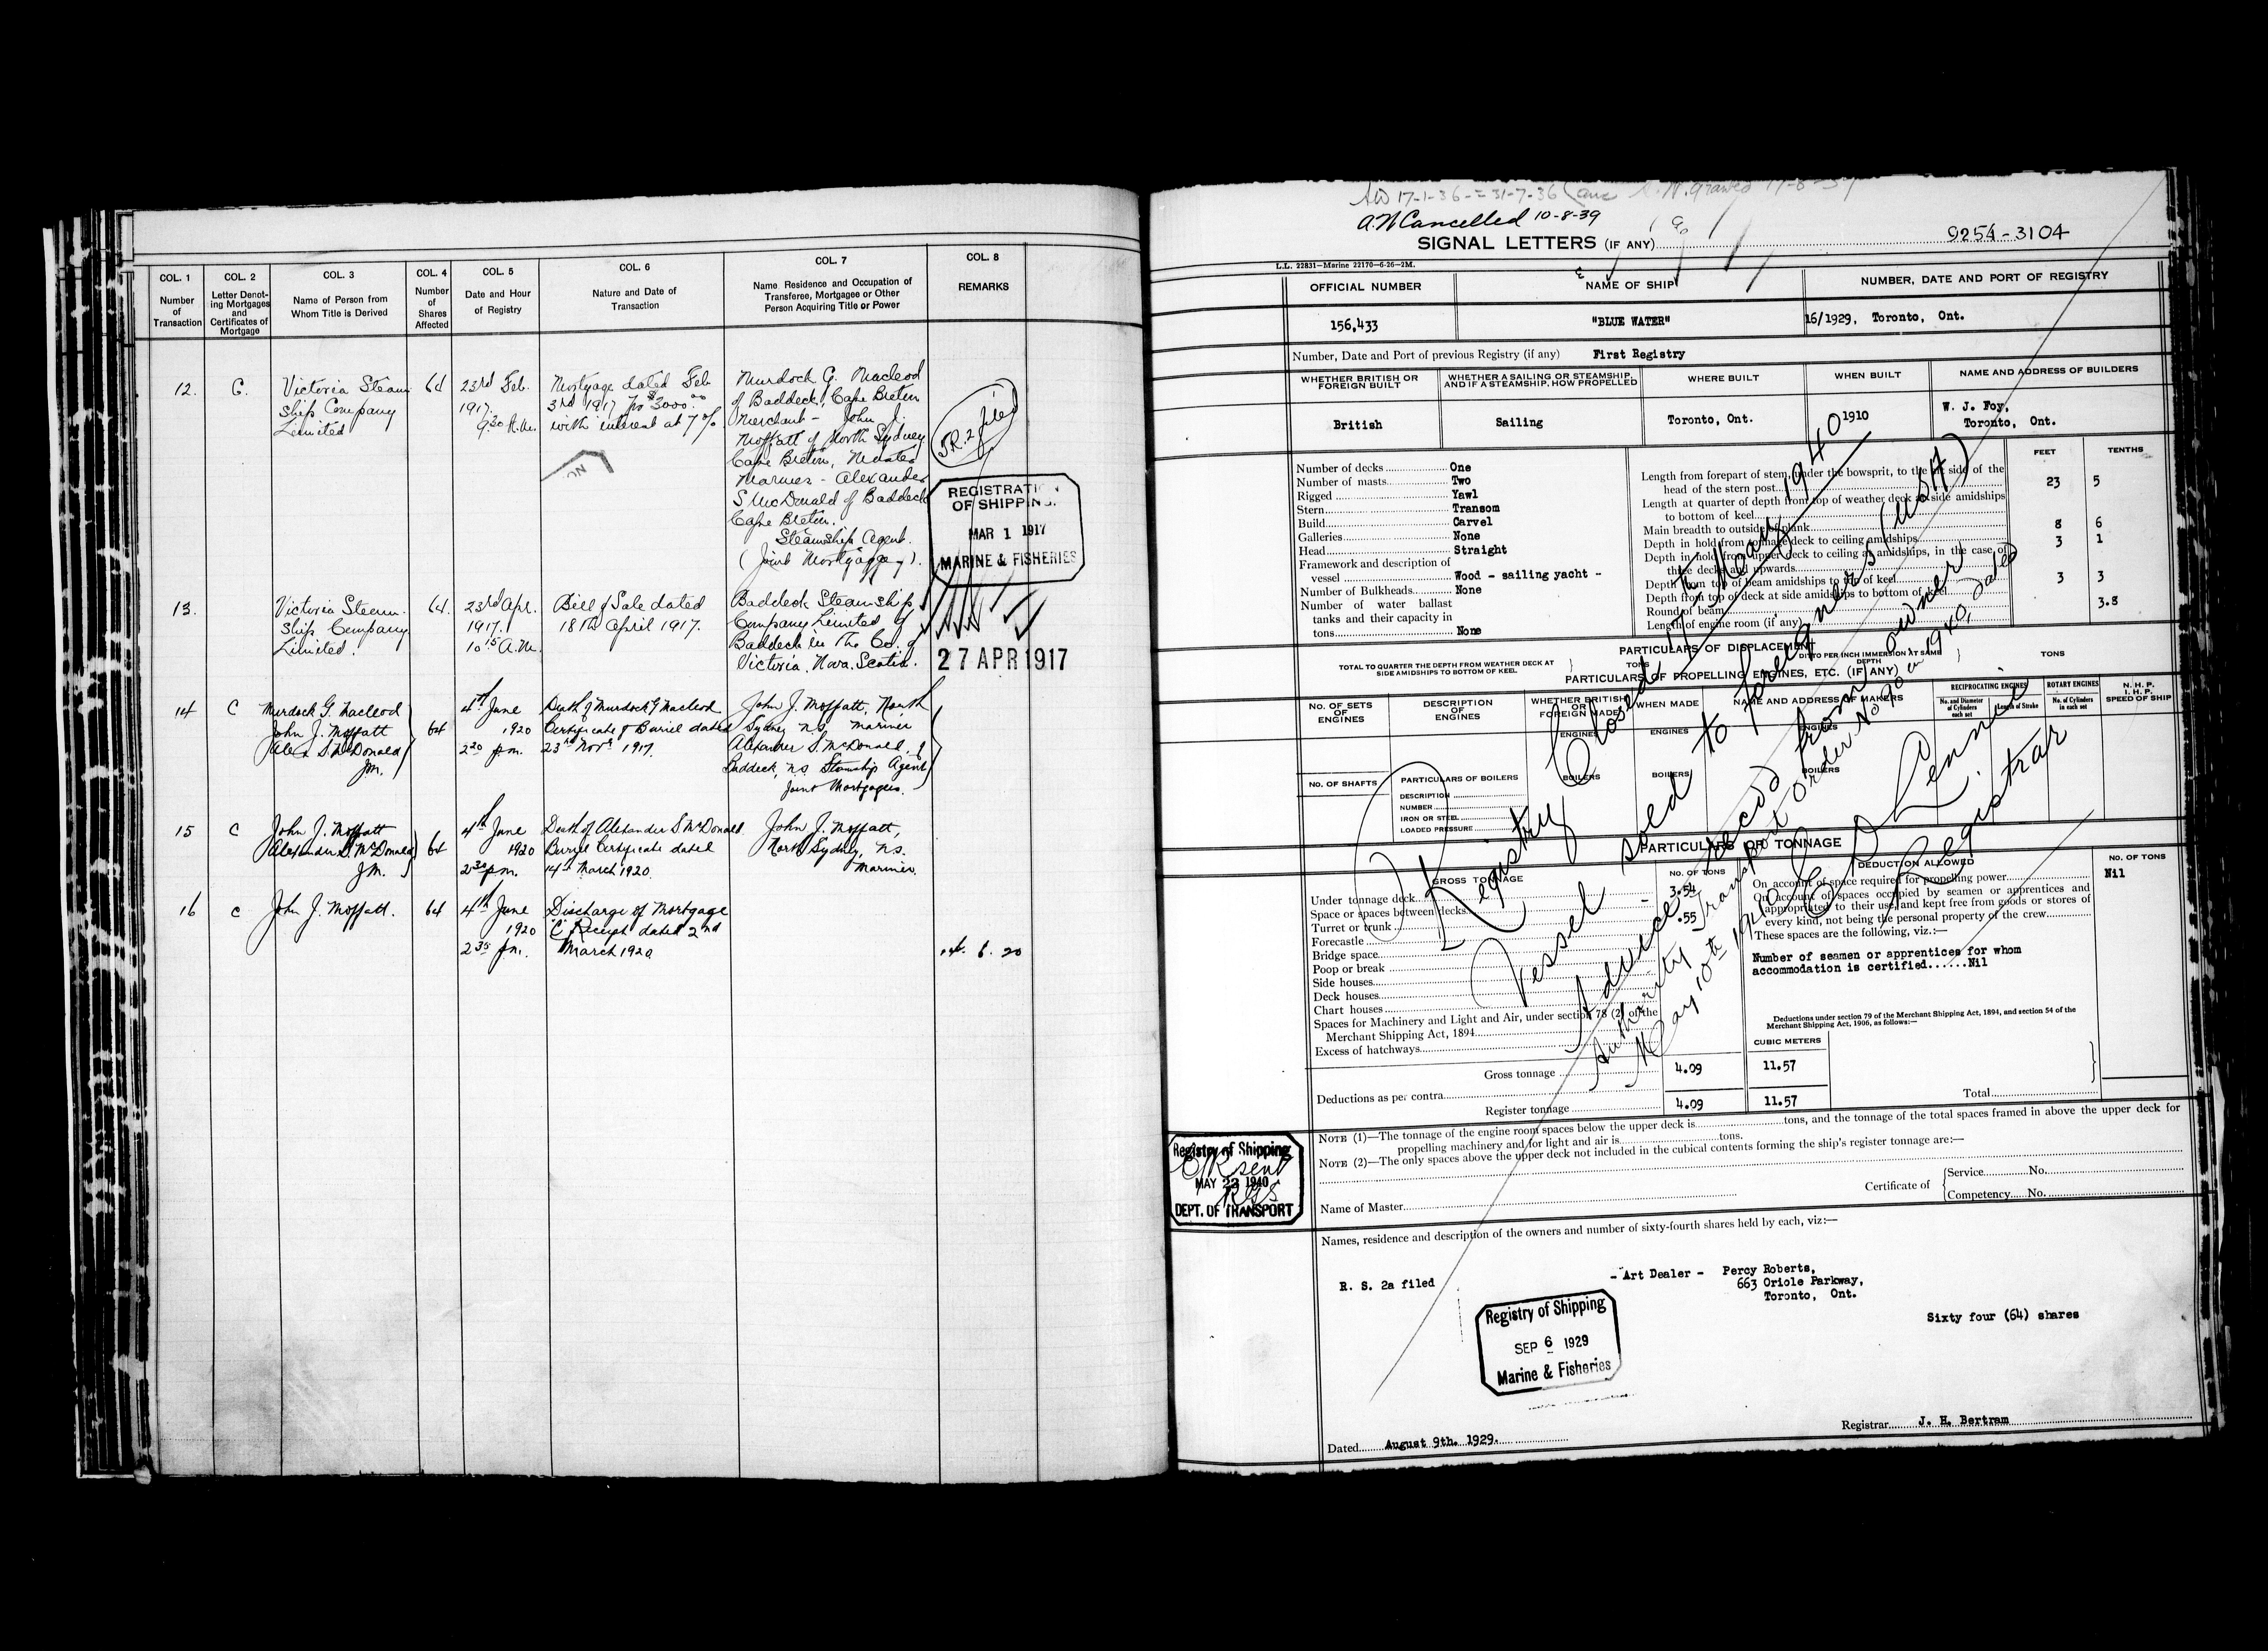 COL. 1
Number
of
Transaction
COL. 2
Letter Denot-
ing Mortgages
and
Certificates of
Mortgage
COL. 3
Name of Person from
Whom Title is Derived
COL. 4
Number
of
Shares
Affected
COL. 5
Date and Hour
of Registry
COL. 6
Nature and Date of
Transaction
COL. 7
Name Residence and Occupation of
Transferee, Mortgagee or Other
Person Acquiring Title or Power
COL. 8
REMARKS
12.
C.
Victoria Steam
Ship Company
Limited
64
23rd Feb.
1917.
9.30 A.M.
Mortgage dated Feb
3rd 1917 for $3000.00
with interest at 7%
Murdock G. Macleod
of Baddeck, Cape Breton
Merchant - John J.
Moffatt of North Sydney
Cape Breton, Master
Mariner - Alexander
S McDonald of Baddeck
Cape Breton.
Steamship Agent.
(Joint Mortgagees).
REGISTRATION
OF SHIPPING.
MAR 1 1917
MARINE & FISHERIES
13.
Victoria Steam
Ship Company
Limited.
64.
23rd Apr.
1917.
10.15 A.M.
Bill of Sale dated
18th April 1917.
Baddeck Steamship
Company Limited of
Baddeck in the Co. of
Victoria. Nova Scotia.
27 APR 1917
14
C
Murdock G. Macleod
John J. Moffatt
Alex S. McDonald
J.M.
64
4th June
1920
2.20 p.m.
Death of Murdock G Macleod
Certificate of Burial dated
23rd Novr 1917.
John J. Moffatt, North
Sydney N.S. mariner
Alexander S. McDonald, of
Baddeck, N.S. Steamship Agent
Joint Mortgagees.
15
C
John J. Moffatt
Alexander S. McDonald
J.M.
64
4th June
1920
2.30 p.m.
Death of Alexander S McDonald
Burial Certificate dated
14th March 1920.
John J. Moffatt,
North Sydney, N.S.
Mariner.
16
C
John J. Moffatt.
64
4th June
1920
2.35 p.m.
Discharge of Mortgage
"C" Receipt dated 2nd
March 1920
14. 6. 20
A.N Cancelled 10-8-39
SIGNAL LETTERS (IF ANY)
9254-3104
L.L. 22831—Marine 22170—6-26—2M.
OFFICIAL NUMBER
NAME OF SHIP
NUMBER, DATE AND PORT OF REGISTRY
156,433
"BLUE WATER"
16/1929, Toronto, Ont.
Number, Date and Port of previous Registry (if any) First Registry
WHETHER BRITISH OR
FOREIGN BUILT
WHETHER A SAILING OR STEAMSHIP,
AND IF A STEAMSHIP, HOW PROPELLED
WHERE BUILT
WHEN BUILT
NAME AND ADDRESS OF BUILDERS
British
Sailing
Toronto, Ont.
1910
W. J. Foy,
Toronto, Ont.
FEET
TENTHS
Number of decks One
Number of masts Two
Rigged Yawl
Stern Transom
Build Carvel
Galleries None
Head Straight
Framework and description of
vessel Wood - sailing yacht -
Number of Bulkheads None
Number of water ballast
tanks and their capacity in
tons None
Length from forepart of stem, under the bowsprit, to the aft side of the
head of the stern post 23 5
Length at quarter of depth from top of weather deck at side amidships
to bottom of keel
Main breadth to outside of plank 8 6
Depth in hold from tonnage deck to ceiling amidships 3 1
Depth in hold from upper deck to ceiling at amidships, in the case of
three decks and upwards
Depth from top of beam amidships to top of keel 3 3
Depth from top of deck at side amidships to bottom of keel
Round of beam 3.8
Length of engine room (if any)
PARTICULARS OF DISPLACEMENT
TOTAL TO QUARTER THE DEPTH FROM WEATHER DECK AT
SIDE AMIDSHIPS TO BOTTOM OF KEEL
TONS
DITTO PER INCH IMMERSION AT SAME
DEPTH
TONS
PARTICULARS OF PROPELLING ENGINES, ETC. (IF ANY)
NO. OF SETS
OF
ENGINES
DESCRIPTION
OF
ENGINES
WHETHER BRITISH
OR
FOREIGN MADE
WHEN MADE
NAME AND ADDRESS OF MAKERS
RECIPROCATING ENGINES
No. and Diameter
of Cylinders
each set
Length of Stroke
ROTARY ENGINES
No. of Cylinders
in each set
N. H. P.
I. H. P.
SPEED OF SHIP
ENGINES
ENGINES
ENGINES
NO. OF SHAFTS
PARTICULARS OF BOILERS
BOILERS
BOILERS
BOILERS
DESCRIPTION
NUMBER
IRON OR STEEL
LOADED PRESSURE
PARTICULARS OF TONNAGE
GROSS TONNAGE
NO. OF TONS
DEDUCTION ALLOWED
NO. OF TONS
Under tonnage deck 3.54
Space or spaces between decks
Turret or trunk .55
Forecastle
Bridge space
Poop or break
Side houses
Deck houses
Chart houses
Spaces for Machinery and Light and Air, under section 78 (2) of the
Merchant Shipping Act, 1894
Excess of hatchways
Gross tonnage 4.09
Deductions as per contra
Register tonnage 4.09
On account of space required for propelling power Nil
On account of spaces occupied by seamen or apprentices and
appropriated to their use, and kept free from goods or stores of
every kind, not being the personal property of the crew
These spaces are the following, viz.:—
Number of seamen or apprentices for whom
accommodation is certified......Nil
Deductions under section 79 of the Merchant Shipping Act, 1894, and section 54 of the
Merchant Shipping Act, 1906, as follows:—
CUBIC METERS
11.57
11.57
Total
Registry Closed 17th May 1940
Vessel sold to foreigners (U.S.A)
Advice recd from owner
Authority Transport Order No 90 1940, dated
May 10th 1940
Registrar
NOTE (1)—The tonnage of the engine room spaces below the upper deck is tons, and the tonnage of the total spaces framed in above the upper deck for
propelling machinery and for light and air is tons.
NOTE (2)—The only spaces above the upper deck not included in the cubical contents forming the ship's register tonnage are:—
Registry of Shipping
MAY 23 1940
DEPT. OF TRANSPORT
Name of Master
Certificate of
Service No.
Competency No.
Names, residence and description of the owners and number of sixty-fourth shares held by each, viz:—
R. S. 2a filed
- Art Dealer - Percy Roberts,
663 Oriole Parkway,
Toronto, Ont.
Sixty four (64) shares
Registry of Shipping
SEP 6 1929
Marine & Fisheries
Dated August 9th. 1929.
Registrar J. H. Bertram